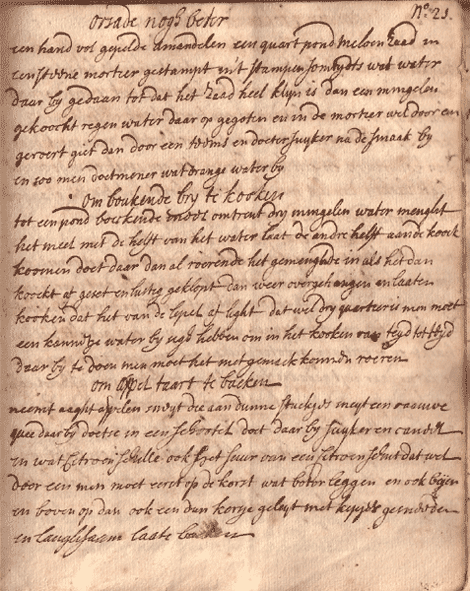 Orsade nogh beter
N<sup>o</sup>. 21.
een hand vol gepelde amandelen een quart pond meloen zaad in
een steene mortier gestampt in't stampen somtydts wat water
daar by gedaan tot dat het zaad heel klyn is dan een mingelen
gekoockt regen water daar op gegoten en in de mortier wel door een
geroert giet dan door een teems en doeter suyker na de smaak by
en soo men doet meer wat orange water by
Om boukende bry te kooken
tot een pond boukende omtrent dry mingelen water menght
het meel met de helft van het water laat de andre helft aan de koock
koomen doet daar dan al roerende het gemenghde in als het dan
koockt af geset en lustig geklopt dan weer overgehangen en laaten
kooken dat het van de lepel af light dat wel dry quartier is men moet
een kannetje water by sigh hebben om in het kooken van tyd tot tyd
daar by te doen men moet het met gemack konnen roeren
om appel taart te backen
neemt aaght appelen snyt die aan dunne stuckjes snyt een rauwe
quee daar by doetse in een schootel doet daar by suyker en caneel
en wat citroen schille ook het suur van een citroen schut dat wel
door een men moet eerst op de korst wat boter leggen en ook
en boven op dan ook een dun korsje geleyt met
en langhsaam laate backen